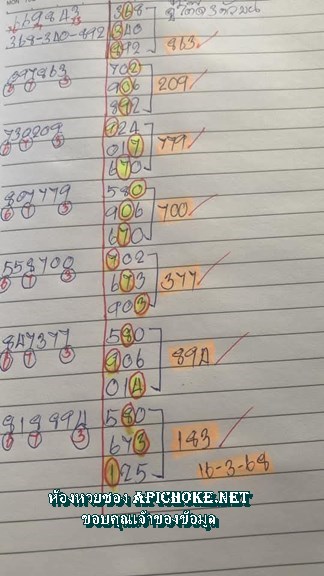 669843
368
368-340-892
340
892
863
097863
702
906
209
892
730209
124
017
779
670
807779
580
906
700
670
558700
702
673
377
903
847377
580
906
894
014
818894
580
673
183
125
16-3-68
ห้องหวยซอง APICHOKE.NET
ขอบคุณเจ้าของข้อมูล